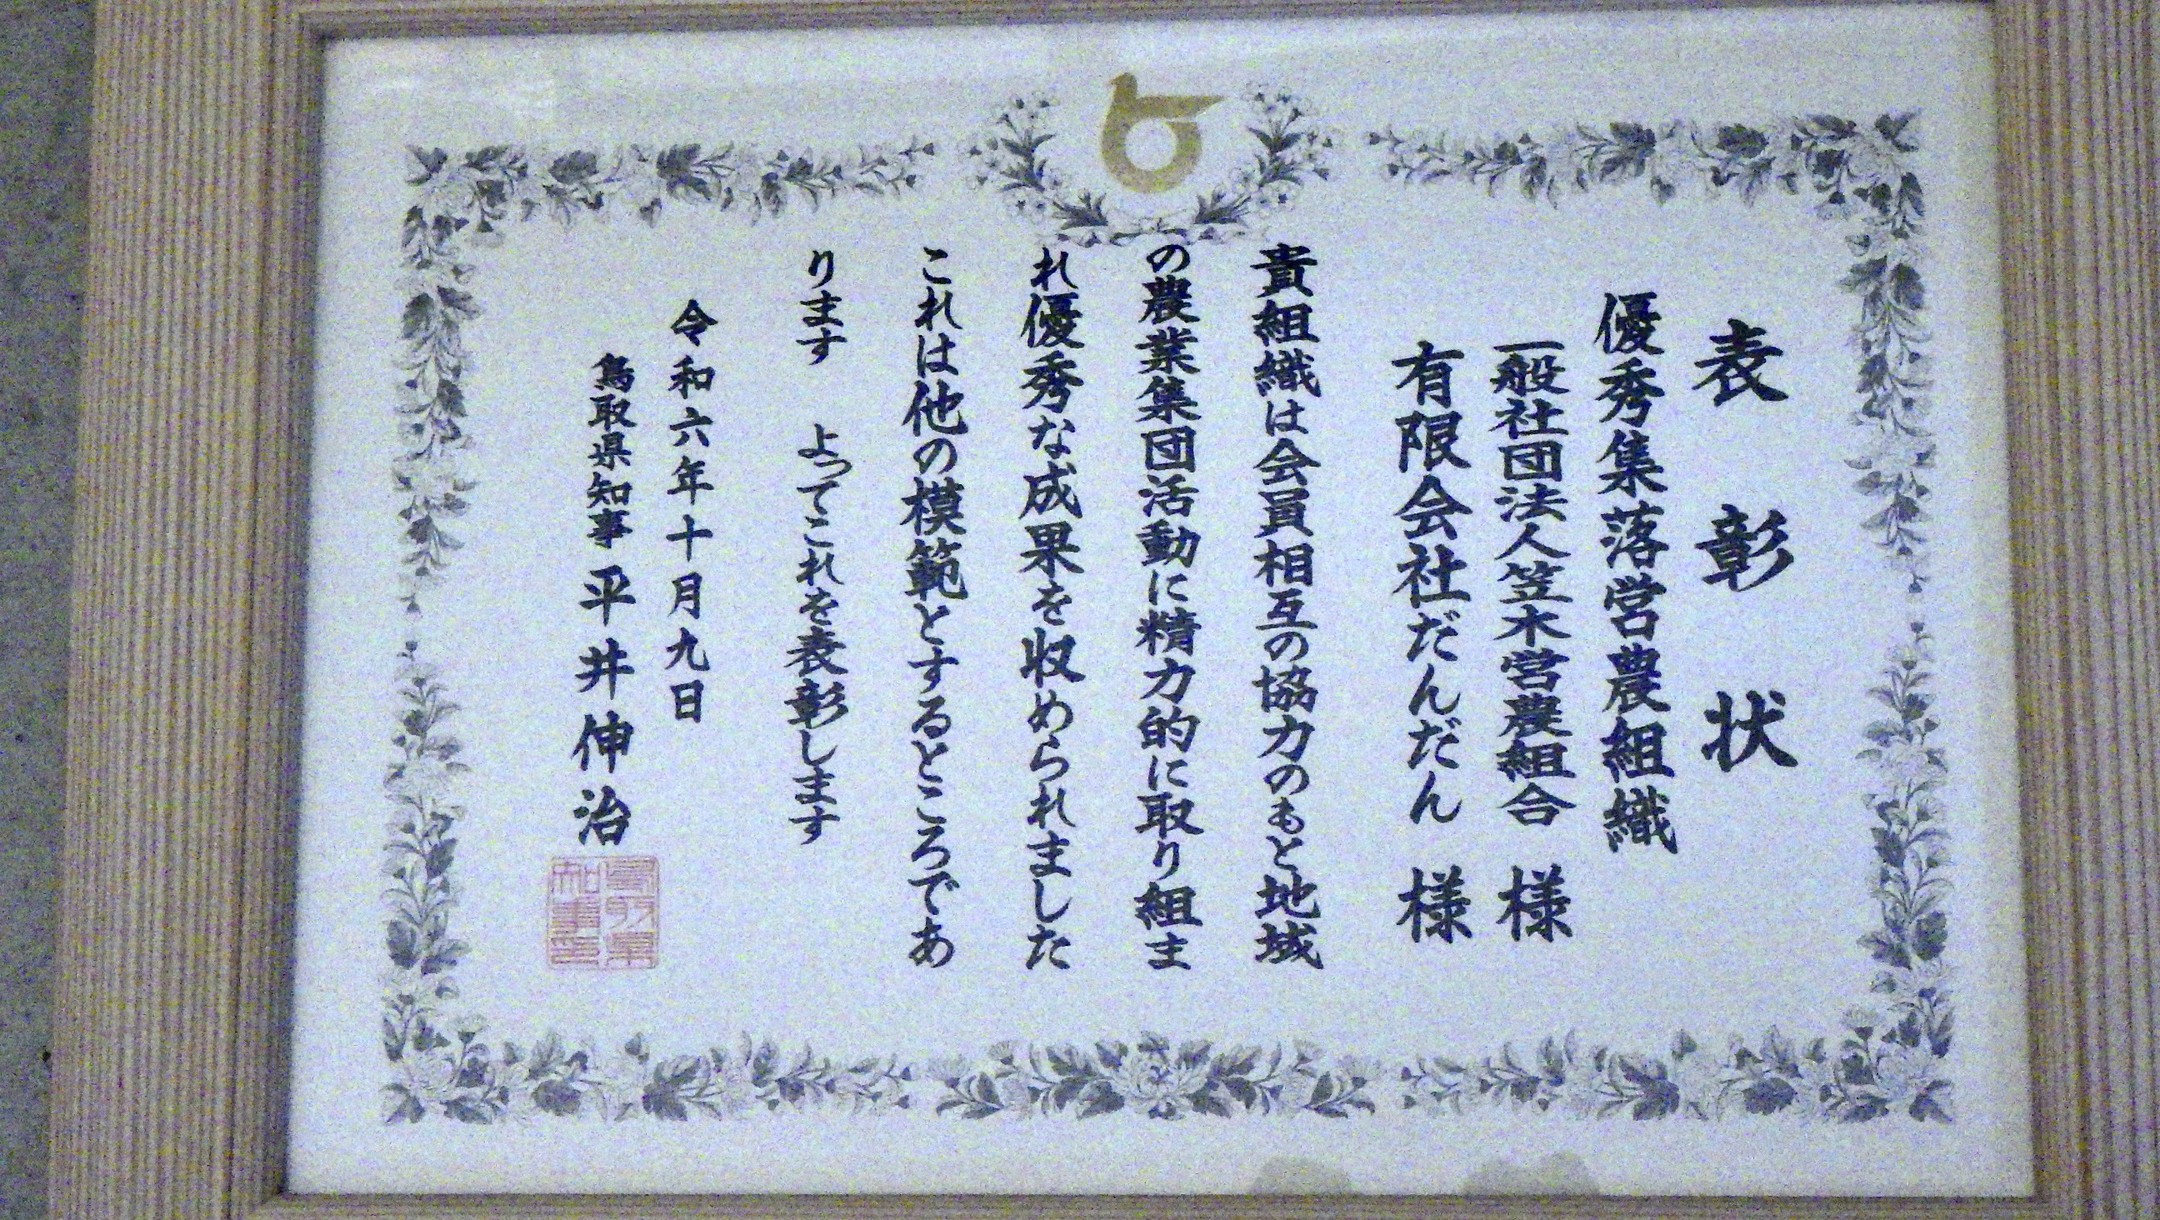 表彰状
優秀集落営農組織
一般社団法人笠木営農組合 様
有限会社だんだん 様
貴組織は会員相互の協力のもと地域
の農業集団活動に精力的に取り組ま
れ優秀な成果を収められました
これは他の模範とするところであ
ります よってこれを表彰します
令和六年十月九日
鳥取県知事 平井伸治
鳥取県知事印